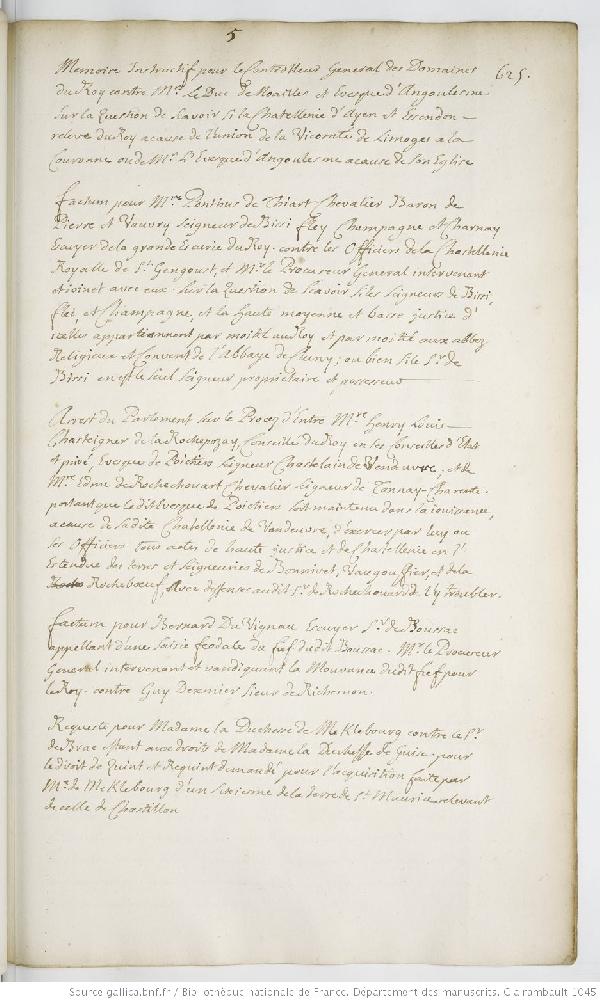 5
625.
Memoire Instructif pour le Controlleur General des Domaines
du Roy contre Mrs. le Duc de Noailles et Evesque d'Angoulesme
Sur la Question de Scavoir si la Chatellenie d'Ayen et Essendon
releve du Roy a cause de l'union de la Vicomté de Limoges a la
Couronne ou de Mr. L'Evesque d'Angoulesme a cause de son Eglise
factum pour Mre. Ponthus de Thiart Chevalier Baron de
Pierre et Vauvry Seigneur de Bissi fley Champagne et Charnay
Escuyer de la grande Escurie du Roy. contre les Officiers de la Chastellenie
Royalle de St. Gengoust, et Mr. le Procureur General intervenant
et joinct avec eux. Sur la Question de Scavoir si les Seigneurs de Bissi,
flei, et Champagne, et la haute moyenne et basse justice d'
icelles appartiennent par moitié au Roy et par moitié aux abbez
Religieux et Convent de l'Abbaye de Cluny, ou bien si le Sr. de
Bissi en est le seul Seigneur proprietaire et possesseur
Arrest du Parlement Sur le Procez d'Entre Mre. Henry Louis
Chasteigner de la Rochepozay, Conseiller du Roy en ses Conseilles d'Estat
et privé, Evesque de Poictiers Seigneur Chastelain de Vendeuvre. et de
Mre. Edme de Rochechouart Chevalier Seigneur de Tonnay-Charente.
portant que ledit Evesque de Poictiers soit maintenu dans la jouissance,
a cause de sadite Chatellenie de Vandeuvre, d'exercer par luy ou
ses Officiers tous actes de haute justice et de Chastellenie en l'
Estendue des terres et Seigneuries de Bonnivet, et de la
Rocheboeuf, Avec deffense audit Sr. de Rochechouard de l'y troubler.
factum pour Bernard Du Vignau Escuyer Sr. de Boussac
appellant d'une Saisie feodale du fief dudit Boussac. Mr. le Procureur
General intervenant et vandiquant la Mouvance dudit fief pour
le Roy. contre Guy sieur de Richemon.
Requeste pour Madame la Duchesse de Meklebourg contre le Sr.
de Brac estant aux droits de Madame la Duchesse de Guise. pour
le droit de Quint et Requint demandé pour l'acquisition faite par
Me. de Meklebourg d'un Seiziesme de la terre de St. Maurice relevant
de celle de Chastillon
Source gallica.bnf.fr / Bibliothèque nationale de France. Département des manuscrits. Clairambault 1045